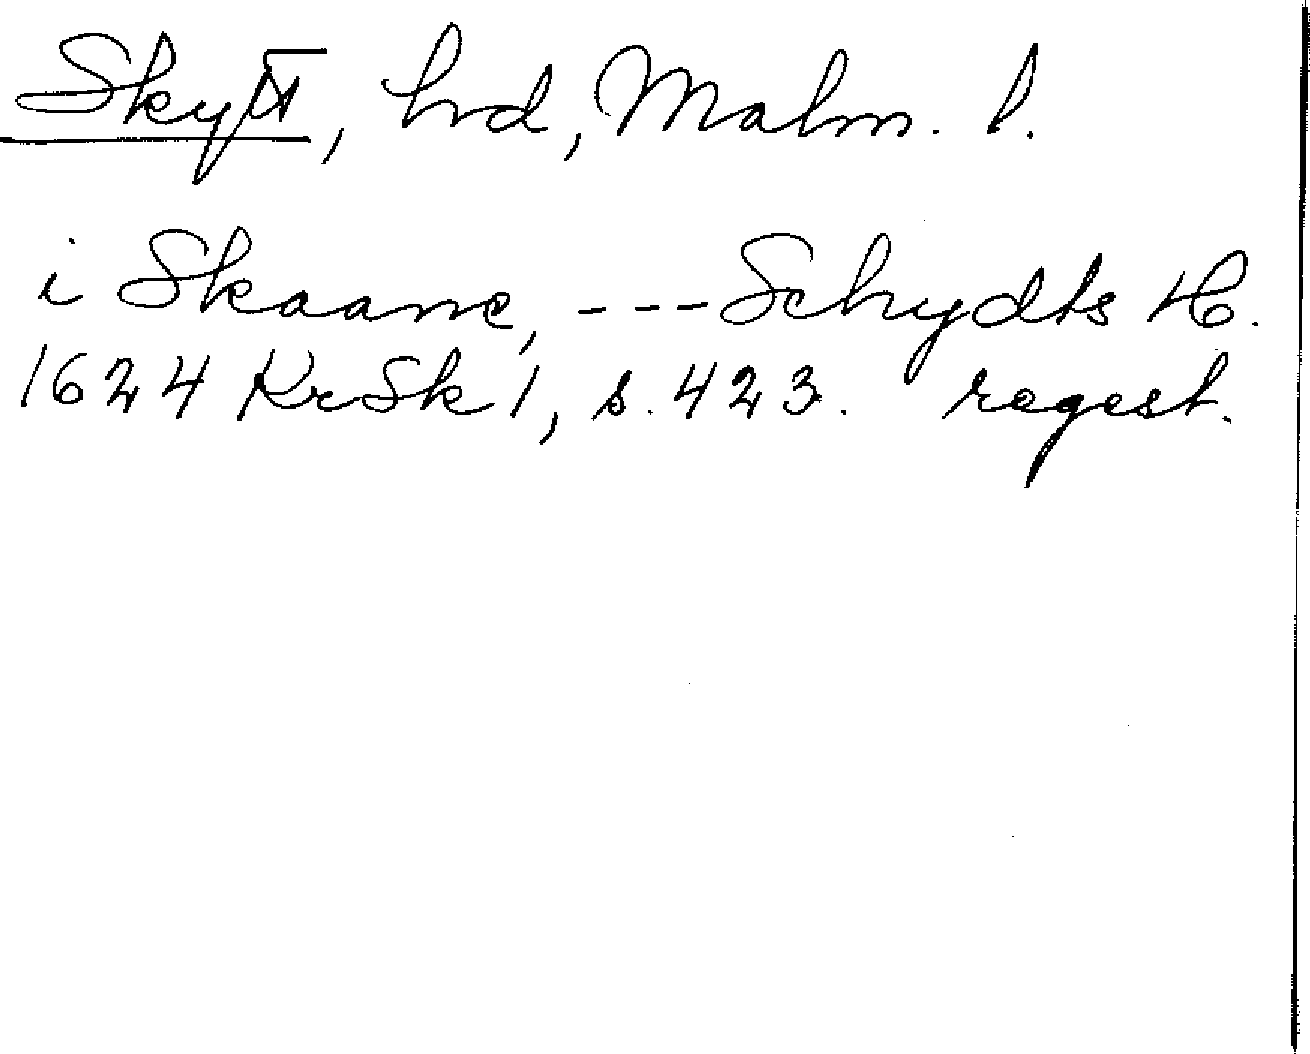 Skytt, hd, Malm. l.
i Skaane, --- Schydts H.
1624 KrSk 1, s. 423. regest.